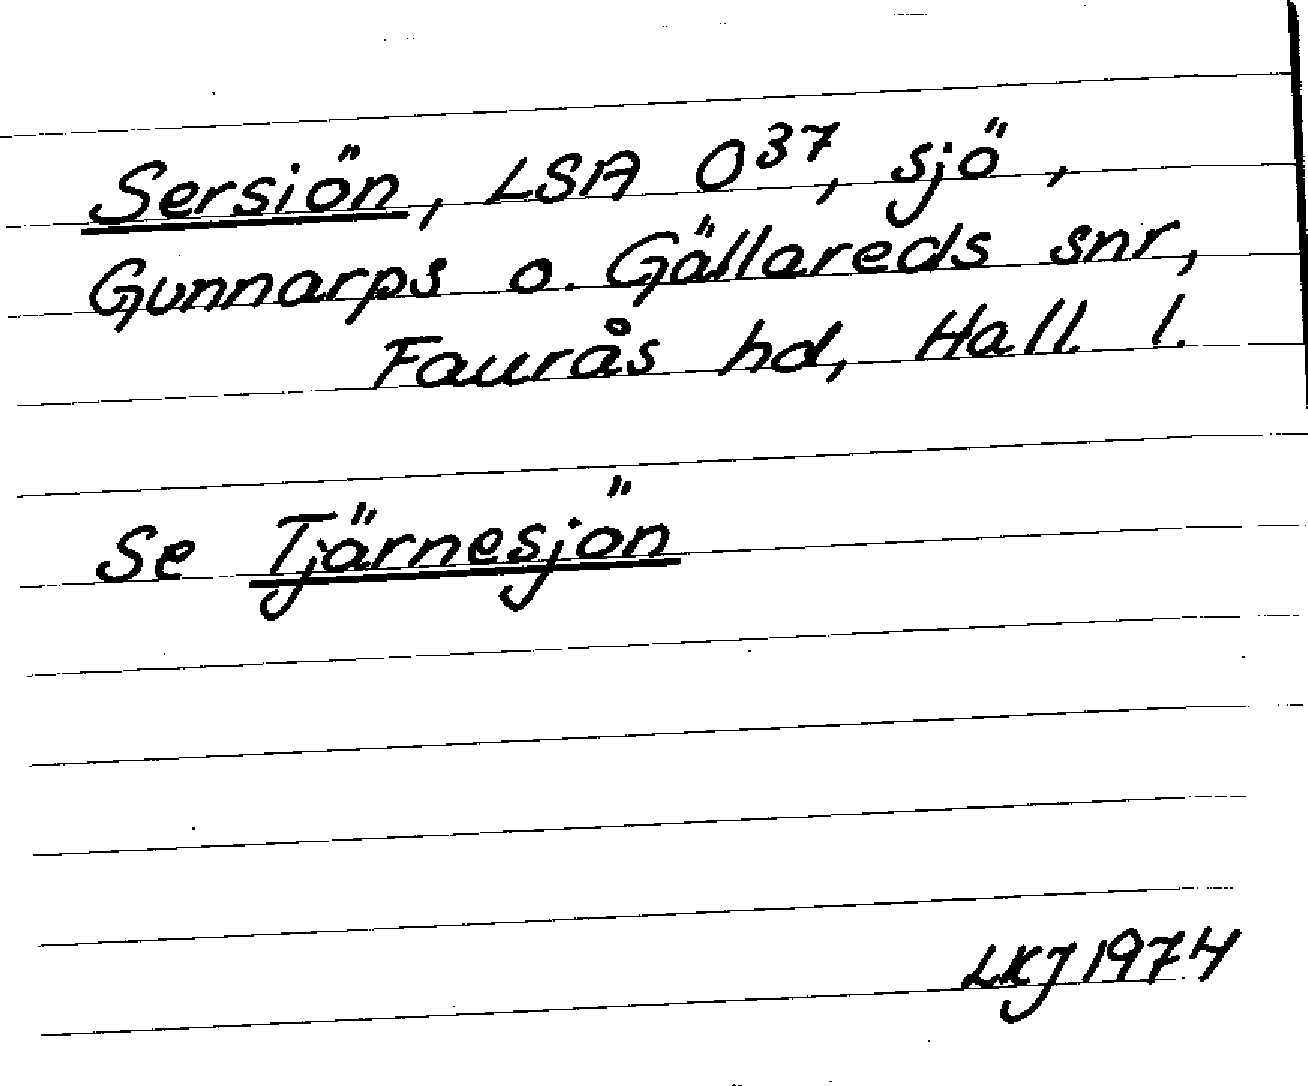 Sersiön, LSA O37, sjö,
Gunnarps o. Gällareds snr,
Faurås hd, Hall. l.
Se Tjärnesjön
LKJ 1974